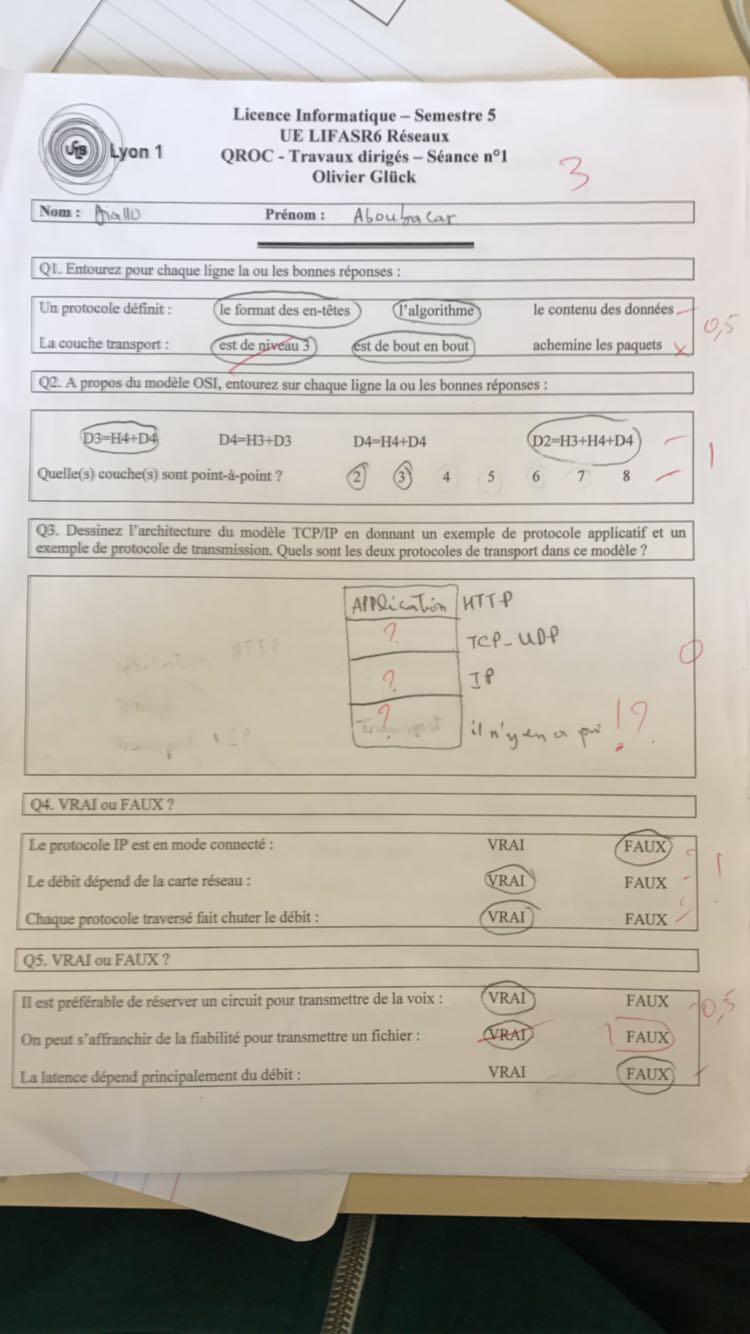 Licence Informatique – Semestre 5
UE LIFASR6 Réseaux
Lyon 1
QROC - Travaux dirigés – Séance n°1
Olivier Glück
3
Nom : Diallo Prénom : Aboubacar
Q1. Entourez pour chaque ligne la ou les bonnes réponses :
Un protocole définit : le format des en-têtes l'algorithme le contenu des données
0,5
La couche transport : est de niveau 3 est de bout en bout achemine les paquets
Q2. A propos du modèle OSI, entourez sur chaque ligne la ou les bonnes réponses :
D3=H4+D4 D4=H3+D3 D4=H4+D4 D2=H3+H4+D4
1
Quelle(s) couche(s) sont point-à-point ? 2 3 4 5 6 7 8
Q3. Dessinez l'architecture du modèle TCP/IP en donnant un exemple de protocole applicatif et un
exemple de protocole de transmission. Quels sont les deux protocoles de transport dans ce modèle ?
Application HTTP
? TCP-UDP
0
? IP
? Transport il n'y en a pas !?
Q4. VRAI ou FAUX ?
Le protocole IP est en mode connecté : VRAI FAUX
1
Le débit dépend de la carte réseau : VRAI FAUX
Chaque protocole traversé fait chuter le débit : VRAI FAUX
Q5. VRAI ou FAUX ?
Il est préférable de réserver un circuit pour transmettre de la voix : VRAI FAUX
0,5
On peut s'affranchir de la fiabilité pour transmettre un fichier : VRAI FAUX
La latence dépend principalement du débit : VRAI FAUX